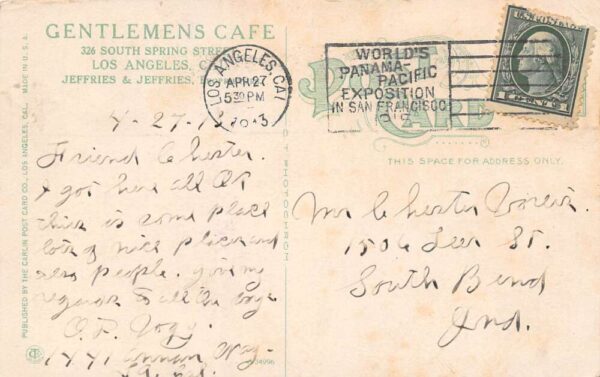 GENTLEMENS CAFE
326 SOUTH SPRING STREET
LOS ANGELES, CAL.
JEFFRIES & JEFFRIES,
LOS ANGELES, CAL
APR 27
5 30 PM
1913
WORLD'S
PANAMA-PACIFIC
EXPOSITION
IN SAN FRANCISCO
1915
U.S. POSTAGE
1 CENT 1
POST CARD
THIS SPACE FOR ADDRESS ONLY.
4-27-13
Friend Chester.
I got here all OK
this is some place
lots of nice places and
also people. give my
regards to all the boys
O.P.
1441
Mr Chester
1506 Leer St.
South Bend
Ind.
PUBLISHED BY THE CARLIN POST CARD CO., LOS ANGELES, CAL. MADE IN U.S.A.